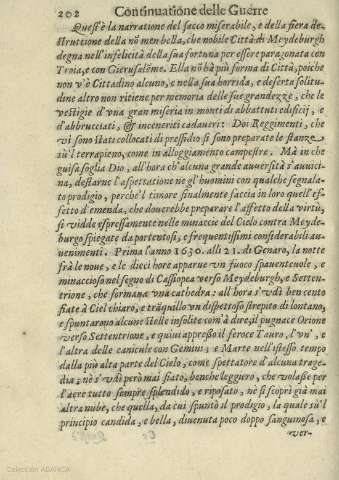 202 Continuatione delle Guerre
Quest'è la narratione del sacco miserabile, e della fiera de-
struttione della nō men bella, che nobile Città di Meydeburgh
degna nell'infelicità della sua fortuna per essere paragonata con
Troia, e con Gierusalēme. Ella nō hà più forma di Città, poiche
non v'è Cittadino alcuno, e nella sua horrida, e deserta solitu-
dine altro non ritiene per memoria delle sue grandezze, che le
vestigie d'vna gran miseria in monti di abbattuti edificij, e
d'abbrucciati, & inceneriti cadaueri: Doi Reggimenti, che
vi sono stati collocati di pressidio si sono preparate le stanze
sù'l terrapieno, come in alloggiamento campestre. Mà in che
guisa soglia Dio, all'hora ch'alcuna grande auuersità s'auuici-
na, destarne l'aspettatione ne gl'huomini con qualche segnala-
to prodigio, perche'l timore finalmente faccia in loro quell'ef-
fetto d'emenda, che douerebbe preparare l'affetto della virtù,
si vidde espressamente nelle minaccie del Cielo contro Meyde-
burgh spiegate da portentosi, e frequentissimi considerabili au-
uenimenti. Prima l'anno 1630. alli 21. di Genaro, la notte
frà le noue, e le dieci hore apparue vn fuoco spauenteuole, e
minaccioso nel segno di Cassiopea verso Meydeburgh, e Setten-
trione, che formaua vna cathedra; all'hora s'vdì ben cento
fiate à Ciel chiaro, e trāquillo vn dispettoso strepito di lontano,
e spuntarono alcune stelle insolite com'à dire, il pugnace Orione
verso Settentrione, e quiui appresso il feroce Tauro, l'vn', e
l'altra delle canicule con Gemini; e Marte nell'istesso tempo
dalla più alta parte del Cielo, come spettatore d'alcuna trage-
dia, nè s'vdì però mai fiato, benche leggiero, che volasse per
l'aere tutto sempre splendido, e riposato, nè si scoprì già mai
altra nube, che quella, da cui spuntò il prodigio, la quale sù'l
principio candida, e bella, diuenuta poco doppo sanguinosa, e
ver-
Colección ABANCA